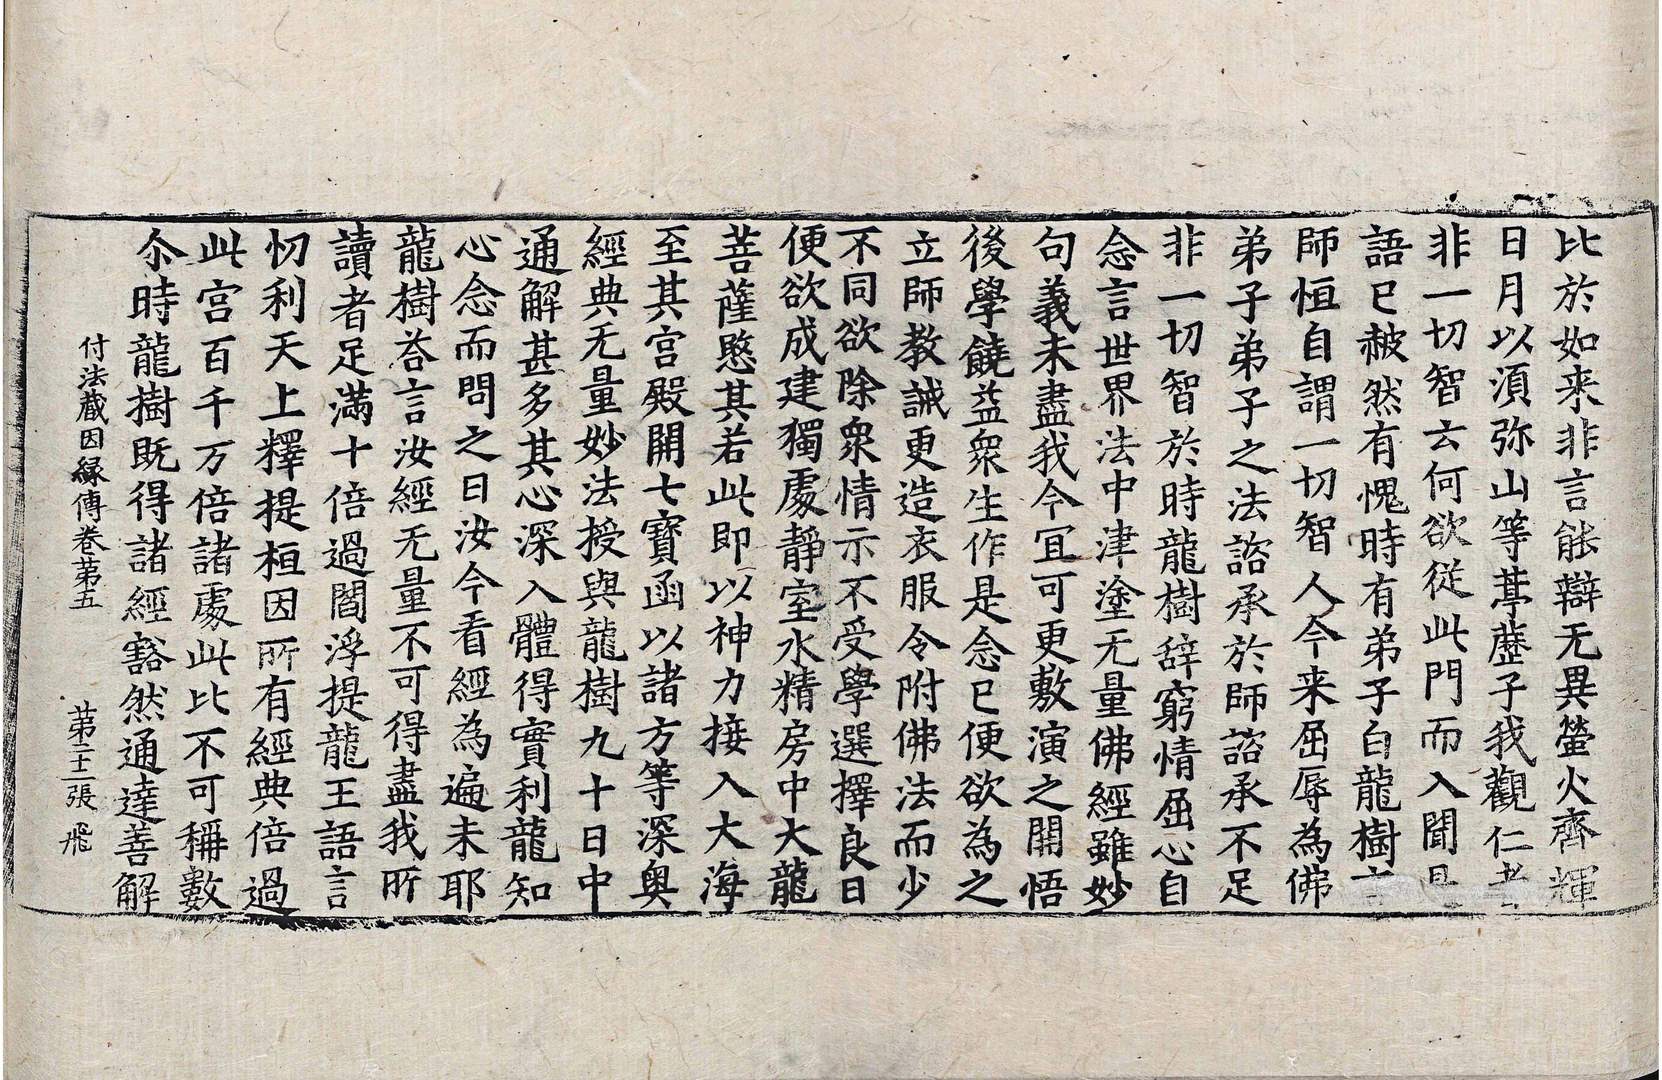 比於如来非言能辯无異螢火齊輝
日月以湏弥山等葶藶子我觀仁者
非一切智云何欲從此門而入聞是
語已赧然有愧時有弟子白龍樹言
師恒自謂一切智人今来屈辱為佛
弟子弟子之法諮承於師諮承不足
非一切智於時龍樹辞窮情屈心自
念言世界法中津塗无量佛經雖妙
句義未盡我今冝可更敷演之開悟
後學饒益衆生作是念已便欲為之
立師教誡更造衣服令附佛法而少
不同欲除衆情示不受學選擇良日
便欲成建獨處靜室水精房中大龍
菩薩愍其若此即以神力接入大海
至其宮殿開七寶函以諸方等深奧
經典无量妙法授與龍樹九十日中
通解甚多其心深入體得實利龍知
心念而問之曰汝今看經為遍未耶
龍樹荅言汝經无量不可得盡我所
讀者足滿十倍過閻浮提龍王語言
忉利天上釋提桓因所有經典倍過
此宮百千万倍諸處此比不可稱數
尒時龍樹既得諸經豁然通達善解
付法藏因緣傳卷苐五 苐二十二張 飛